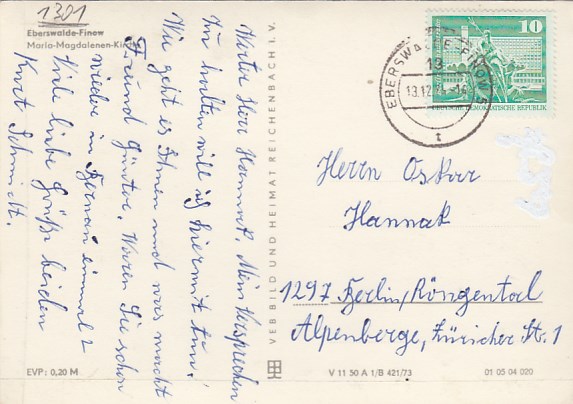 1301
Eberswalde-Finow
Maria-Magdalenen-Kirche
Werter Herr Hannak, Mein Versprechen
zur halten will ich hiermit tun.
Wie geht es Ihnen und was macht
Freund Günter. Waren Sie schon
wieder in Bernau einmal?
Viele liebe Grüße beiden
Kurt Schmidt.
EVP: 0,20 M
VEB BILD UND HEIMAT REICHENBACH I. V.
V 11 50 A 1/B 421/73
01 05 04 020
10
DEUTSCHE DEMOKRATISCHE REPUBLIK
EBERSWALDE-FINOW
13
t
Herrn Oskar
Hannak
1297 Berlin/Röngental
Alpenberge, Züricher Str. 1